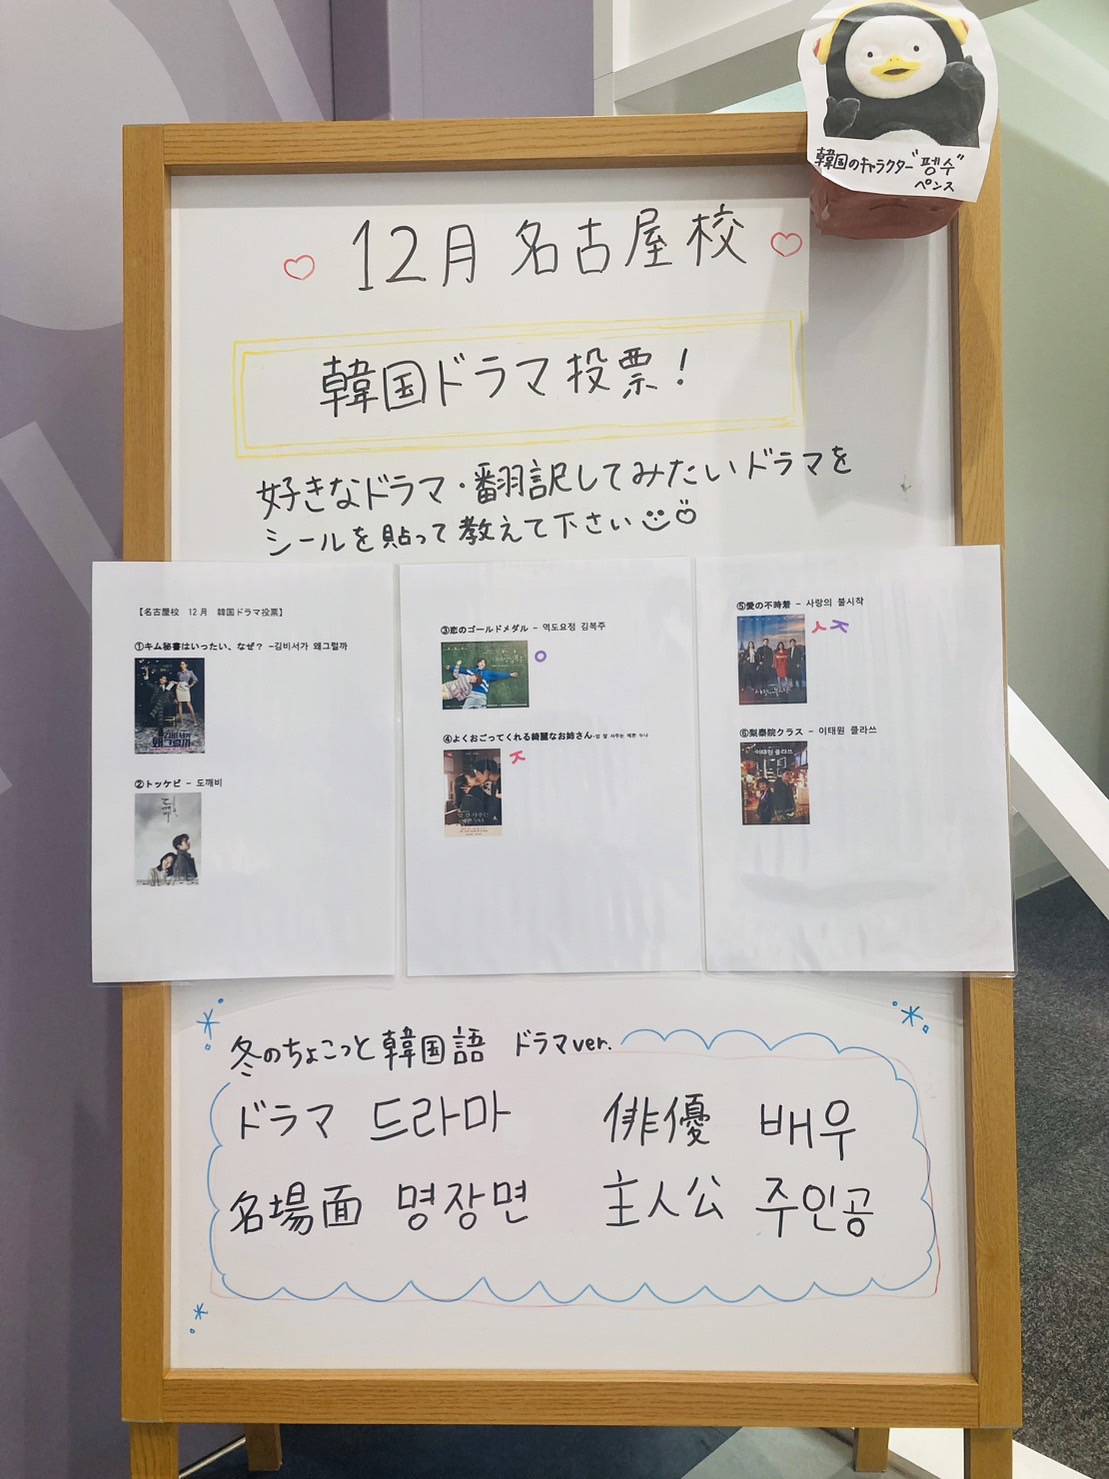 韓国のキャラクター"펭수"
ペンス
12月 名古屋校
韓国ドラマ投票！
好きなドラマ・翻訳してみたいドラマを
シールを貼って教えて下さい
【名古屋校 12月 韓国ドラマ投票】
①キム秘書はいったい、なぜ？ -김비서가 왜그럴까
김비서가
왜 그럴까
②トッケビ - 도깨비
③恋のゴールドメダル - 역도요정 김복주
ㅇ
④よくおごってくれる綺麗なお姉さん-밥 잘 사주는 예쁜 누나
ㅈ
⑤愛の不時着 - 사랑의 불시작
ㅅㅈ
⑥梨泰院クラス - 이태원 클라쓰
이태원 클라쓰
冬のちょこっと韓国語 ドラマver.
ドラマ 드라마 俳優 배우
名場面 명장면 主人公 주인공